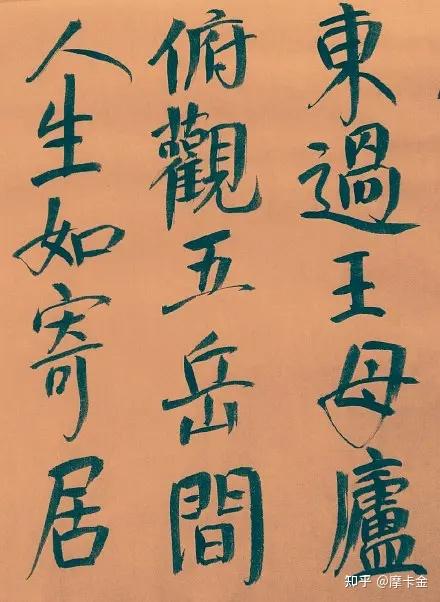 東過王母廬
俯觀五岳間
人生如寄居
知乎 @摩卡金